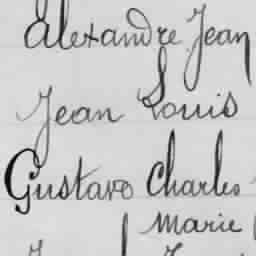 Alexandre Jean
Jean Louis
Gustave Charles
Marie